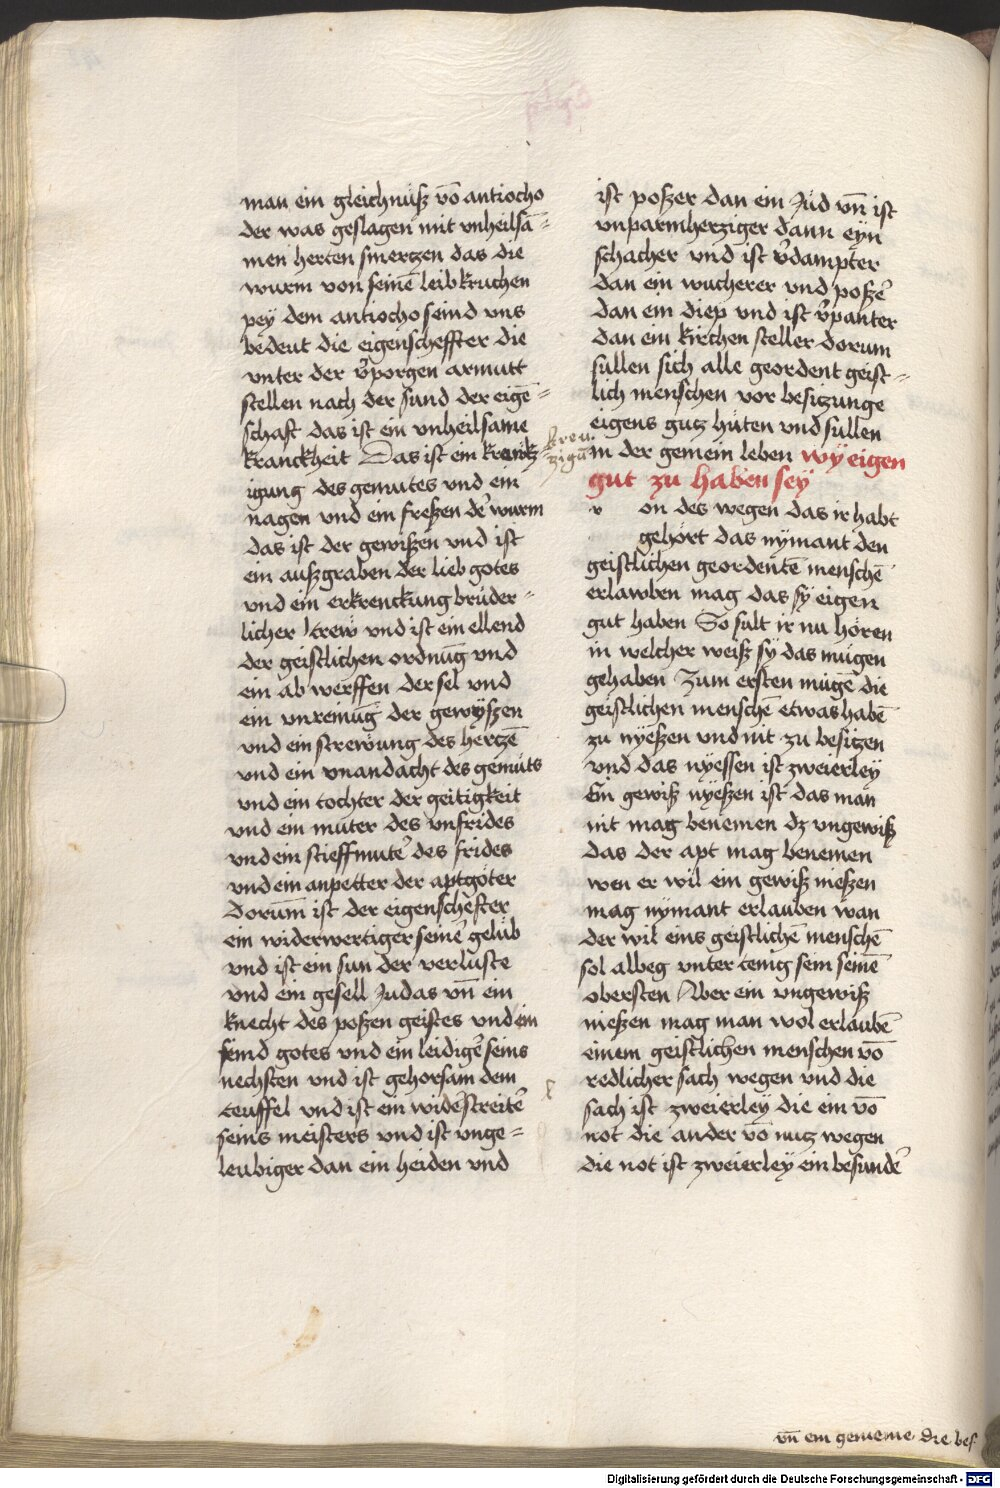 man ein gleichnüsz vō antiocho
der was geslagen mit vnheilsā=
men herten smertzen das die
wurm von seinē leib kruchen
pey dem antiocho seind vns
bedeut die eigenscheffter die
vnter der v̾porgen armutt
stellen nach der sund der eigē=
schaft das ist ein vnheilsame
kranckheit Das ist ein krenitz=
igung des gemutes vnd ein
nagen vnd ein freszen de᷑ wurm
das ist der gewiszen vnd ist
ein auszgraben der lieb gotes
vnd ein erkrenckung brüder=
licher trew vnd ist ein ellend
der geistlichen ordnūg vnd
ein ab werffen der sel vnd
ein vnreinūg der gewyszen
vnd ein strewung des hertzē
vnd ein vnandacht des gemüts
vnd ein tochter der geitigkeit
vnd ein muter des vnfrides
vnd ein stieffmute᷑ des frides
vnd ein anpetter der aptgöter
Dorum̄ ist der eigenschefter
ein widerwertiger seine᷑ gelüb
vnd ist ein sun der verluste
vnd ein gesell Judas vn̄ ein
knecht des poszen geistes vnd ein
feind gotes vnd ein leidige᷑ seins
nechsten vnd ist gehorsam dem
teuffel vnd ist ein wide᷑streite᷑
seins meisters vnd ist vnge=
leubiger dan ein heiden vnd
kreu
zigūg
ist poszer dan ein Jüd vn̄ ist
vnparmherziger dann eyn
schacher vnd ist v̾dampter
dan ein wucherer vnd posze᷑
dan ein diep vnd ist v̾panter
dan ein kirchen steller dorum
sullen sich alle geordent geist=
lich menschen vor besitzunge
eigens gutz hüten vnd sullen
in der gemein leben wy eigen
gut zu haben sey
v on des wegen das ir habt
gehört das nymant den
geistlichen geordentē menschē
erlawben mag das sy eigen
gut haben So sült ir nu hören
in welcher weisz sy das mügen
gehaben Zum ersten mügē die
geistlichen menschē etwas habē
zu nyeszen vnd nit zu besitzen
vnd das nyessen ist zweierley
Ein gewisz nyeszen ist das man
nit mag benemen dz vngewisz
das der apt mag benemen
wen er wil ein gewisz nieszen
mag nymant erlauben wan
der wil eins geistlichē menschē
sol albeg vnter tenig sein seinē
obersten Aber ein vngewisz
nieszen mag man wol erlaubē
einem geistlichen menschen vō
redlicher sach wegen vnd die
sach ist zweierley die ein vō
not die ander vō nutz wegen
die not ist zweierley ein besunde᷑
vn̄ ein gemeine die bes
Digitalisierung gefördert durch die Deutsche Forschungsgemeinschaft - DFG